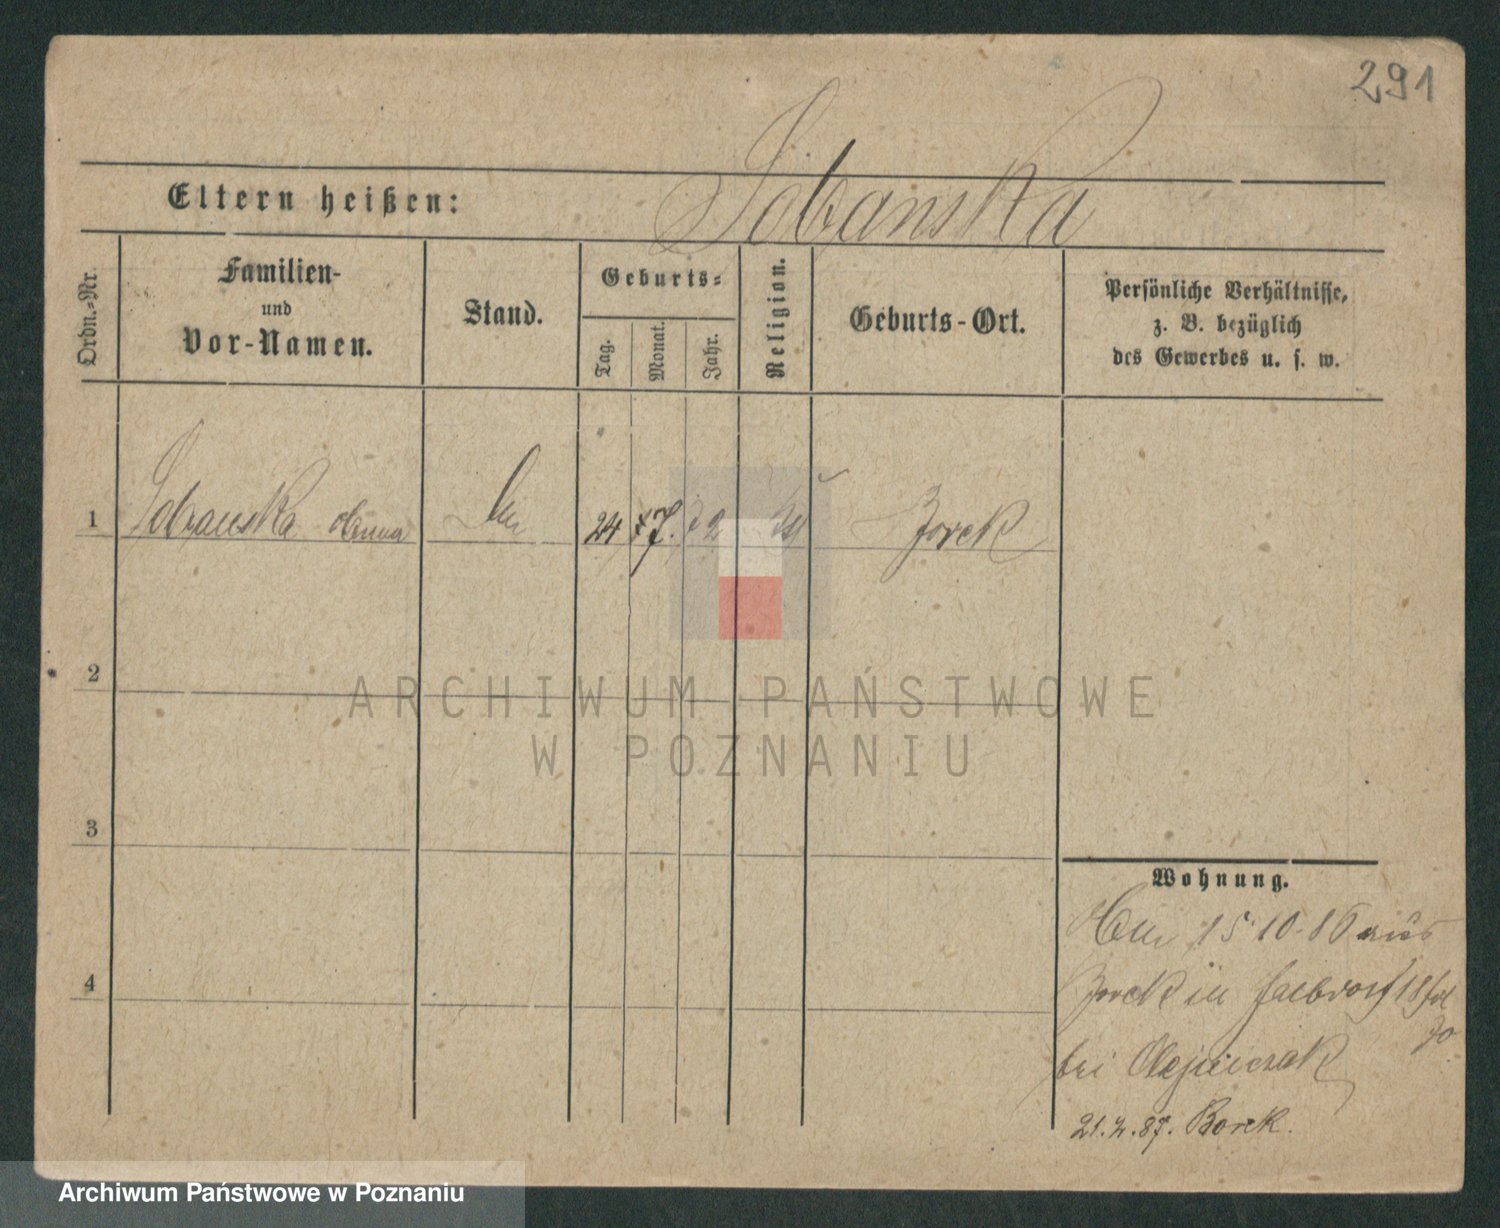 291
Eltern heißen: Sobanska
Ordn.-Nr.
Familien-
und
Vor-Namen.
Stand.
Geburts-
Tag.
Monat.
Jahr.
Religion.
Geburts-Ort.
Persönliche Verhältnisse,
z. B. bezüglich
des Gewerbes u. s. w.
1 Anna 24 7. 72 Borek
2
3
4
ARCHIWUM PAŃSTWOWE
W POZNANIU
Wohnung.
15.10.86 aus
Borek in
bei Olejniczak
21.2.87. Borek.
Archiwum Państwowe w Poznaniu